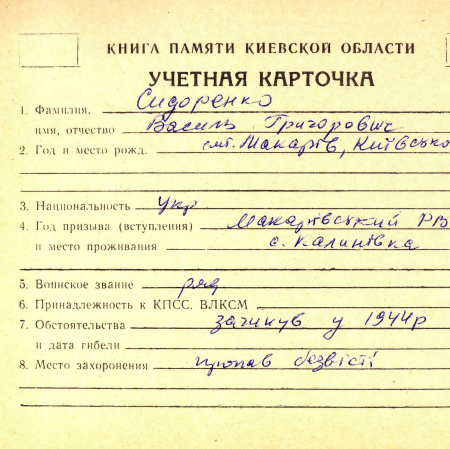 КНИГА ПАМЯТИ КИЕВСКОЙ ОБЛАСТИ
УЧЕТНАЯ КАРТОЧКА
1. Фамилия, Сидоренко
имя, отчество Василь Григорович
2. Год и место рожд. смт. Макарів, Київсько
3. Национальность укр
4. Год призыва (вступления) Макарівський РВ
и место проживания с. Калинівка
5. Воинское звание ряд
6. Принадлежность к КПСС, ВЛКСМ
7. Обстоятельства загинув у 1944р
и дата гибели
8. Место захоронения пропав безвісті